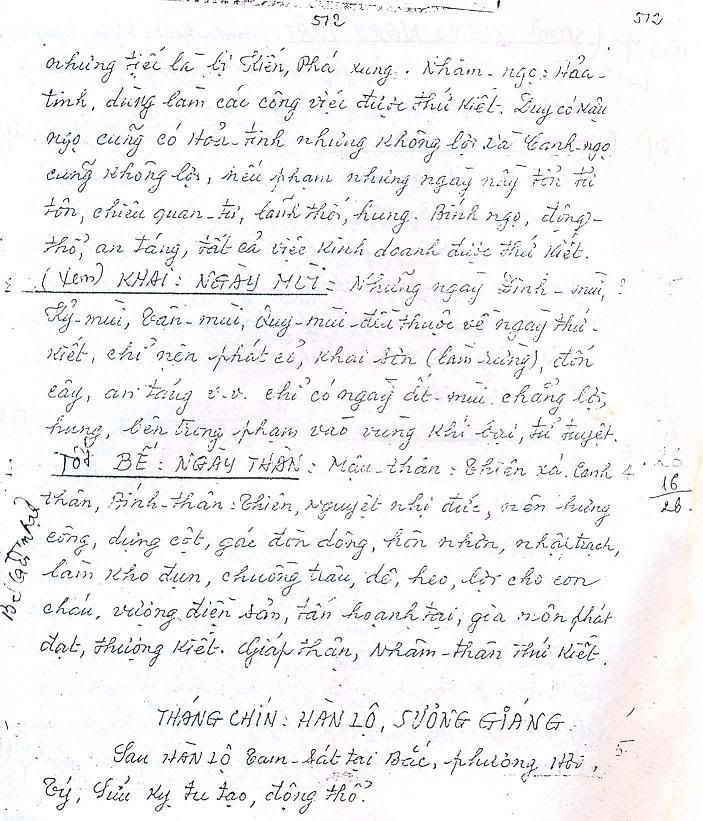 512 512
nhưng tiếc là bị Kiến, Phá xung. Nhâm-ngọ: Hỏa-
tinh, dùng làm các công việc được thứ kiết. Duy có Mậu
ngọ cũng có Hỏa-tinh nhưng không lợi và Canh-ngọ
cũng không lợi, nếu phạm những ngày nầy tổn tử
tôn, chiêu quan-tư, lãnh thối, hung. Bính ngọ, động-
thổ, an táng, tất cả việc kinh doanh được thứ kiết.
(Xem) KHAI: NGÀY MÙI: Những ngày Đinh-mùi,
Kỷ-mùi, Tân-mùi, Quý-mùi đều thuộc về ngày thứ-
kiết, chỉ nên phát cỏ, khai sơn (làm rừng), đốn
cây, an táng v.v. chỉ có ngày ất-mùi chẳng lợi,
hung, bên trong phạm vào vùng khí bại, tử tuyệt.
Tốt BẾ: NGÀY THÂN: Mậu-thân: Thiên xá. Canh 4
16
26.
thân, Bính-thân: Thiên, Nguyệt nhị đức, nên hưng
công, dựng cột, gác đòn dông, hôn nhơn, nhập trạch,
làm kho đụn, chuồng trâu, dê, heo, lợi cho con
cháu, vượng điền sản, tấn hoạnh tài, gia môn phát
đạt, thượng kiết. Giáp thân, Nhâm-thân thứ kiết.
THÁNG CHÍN: HÀN LỘ, SƯƠNG GIÁNG.
Sau HÀN LỘ Tam-Sát tại Bắc, phương Hợi,
Tý, Sửu kỵ tu tạo, động thổ.